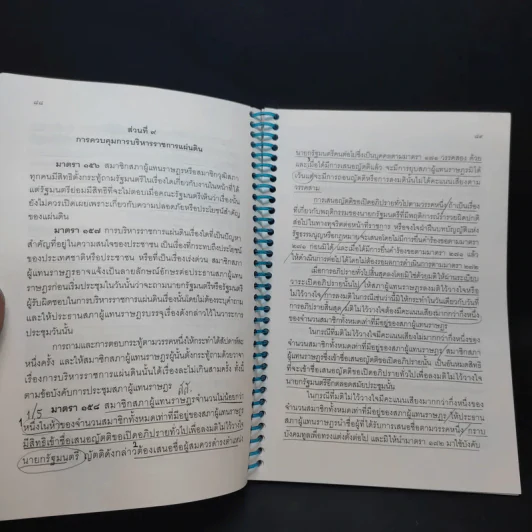 ๘๘
ส่วนที่ ๙
การควบคุมการบริหารราชการแผ่นดิน
มาตรา ๑๕๖ สมาชิกสภาผู้แทนราษฎรหรือสมาชิกวุฒิสภา
ทุกคนมีสิทธิตั้งกระทู้ถามรัฐมนตรีในเรื่องใดเกี่ยวกับงานในหน้าที่ได้
แต่รัฐมนตรีย่อมมีสิทธิที่จะไม่ตอบเมื่อคณะรัฐมนตรีเห็นว่าเรื่องนั้น
ยังไม่ควรเปิดเผยเพราะเกี่ยวกับความปลอดภัยหรือประโยชน์สำคัญ
ของแผ่นดิน
มาตรา ๑๕๗ การบริหารราชการแผ่นดินเรื่องใดที่เป็นปัญหา
สำคัญที่อยู่ในความสนใจของประชาชน เป็นเรื่องที่กระทบถึงประโยชน์
ของประเทศชาติหรือประชาชน หรือที่เป็นเรื่องเร่งด่วน สมาชิกสภา
ผู้แทนราษฎรอาจแจ้งเป็นลายลักษณ์อักษรต่อประธานสภาผู้แทน
ราษฎรก่อนเริ่มประชุมในวันนั้นว่าจะถามนายกรัฐมนตรีหรือรัฐมนตรี
ผู้รับผิดชอบในการบริหารราชการแผ่นดินเรื่องนั้นโดยไม่ต้องระบุคำถาม
และให้ประธานสภาผู้แทนราษฎรบรรจุเรื่องดังกล่าวไว้ในวาระการ
ประชุมวันนั้น
การถามและการตอบกระทู้ตามวรรคหนึ่งให้กระทำได้สัปดาห์ละ
หนึ่งครั้ง และให้สมาชิกสภาผู้แทนราษฎรผู้นั้นตั้งกระทู้ถามด้วยวาจา
เรื่องการบริหารราชการแผ่นดินนั้นได้เรื่องละไม่เกินสามครั้ง ทั้งนี้
ตามข้อบังคับการประชุมสภาผู้แทนราษฎร
1/5 มาตรา ๑๕๘ สมาชิกสภาผู้แทนราษฎรจำนวนไม่น้อยกว่า
หนึ่งในห้าของจำนวนสมาชิกทั้งหมดเท่าที่มีอยู่ของสภาผู้แทนราษฎร
มีสิทธิเข้าชื่อเสนอญัตติขอเปิดอภิปรายทั่วไปเพื่อลงมติไม่ไว้วางใจ
นายกรัฐมนตรี ญัตติดังกล่าวต้องเสนอชื่อผู้สมควรดำรงตำแหน่ง
๘๙
นายกรัฐมนตรีคนต่อไปซึ่งเป็นบุคคลตามมาตรา ๑๗๑ วรรคสอง ด้วย
และเมื่อได้มีการเสนอญัตติแล้ว จะมีการยุบสภาผู้แทนราษฎรมิได้
เว้นแต่จะมีการถอนญัตติหรือการลงมตินั้นไม่ได้คะแนนเสียงตาม
วรรคสาม
การเสนอญัตติขอเปิดอภิปรายทั่วไปตามวรรคหนึ่ง ถ้าเป็นเรื่อง
ที่เกี่ยวกับพฤติกรรมของนายกรัฐมนตรีที่มีพฤติการณ์ร่ำรวยผิดปกติ
ส่อไปในทางทุจริตต่อหน้าที่ราชการ หรือจงใจฝ่าฝืนบทบัญญัติแห่ง
รัฐธรรมนูญหรือกฎหมายจะเสนอโดยไม่มีการยื่นคำร้องขอตามมาตรา
๒๗๑ ก่อนมิได้ และเมื่อได้มีการยื่นคำร้องขอตามมาตรา ๒๗๑ แล้ว
ให้ดำเนินการต่อไปได้โดยไม่ต้องรอผลการดำเนินการตามมาตรา ๒๗๒
เมื่อการอภิปรายทั่วไปสิ้นสุดลงโดยมิใช่ด้วยมติให้ผ่านระเบียบ
วาระเปิดอภิปรายนั้นไป ให้สภาผู้แทนราษฎรลงมติไว้วางใจหรือ
ไม่ไว้วางใจ การลงมติในกรณีเช่นว่านี้มิให้กระทำในวันเดียวกับวันที่
การอภิปรายสิ้นสุด มติไม่ไว้วางใจต้องมีคะแนนเสียงมากกว่ากึ่งหนึ่ง
ของจำนวนสมาชิกทั้งหมดเท่าที่มีอยู่ของสภาผู้แทนราษฎร
ในกรณีที่มติไม่ไว้วางใจมีคะแนนเสียงไม่มากกว่ากึ่งหนึ่งของ
จำนวนสมาชิกทั้งหมดเท่าที่มีอยู่ของสภาผู้แทนราษฎร สมาชิกสภา
ผู้แทนราษฎรซึ่งเข้าชื่อเสนอญัตติขอเปิดอภิปรายนั้น เป็นอันหมดสิทธิ
ที่จะเข้าชื่อเสนอญัตติขอเปิดอภิปรายทั่วไปเพื่อลงมติไม่ไว้วางใจ
นายกรัฐมนตรีอีกตลอดสมัยประชุมนั้น
ในกรณีที่มติไม่ไว้วางใจมีคะแนนเสียงมากกว่ากึ่งหนึ่งของ
จำนวนสมาชิกทั้งหมดเท่าที่มีอยู่ของสภาผู้แทนราษฎร ให้ประธาน
สภาผู้แทนราษฎรนำชื่อผู้ที่ได้รับการเสนอชื่อตามวรรคหนึ่ง กราบ
บังคมทูลเพื่อทรงแต่งตั้งต่อไป และมิให้นำมาตรา ๑๗๒ มาใช้บังคับ